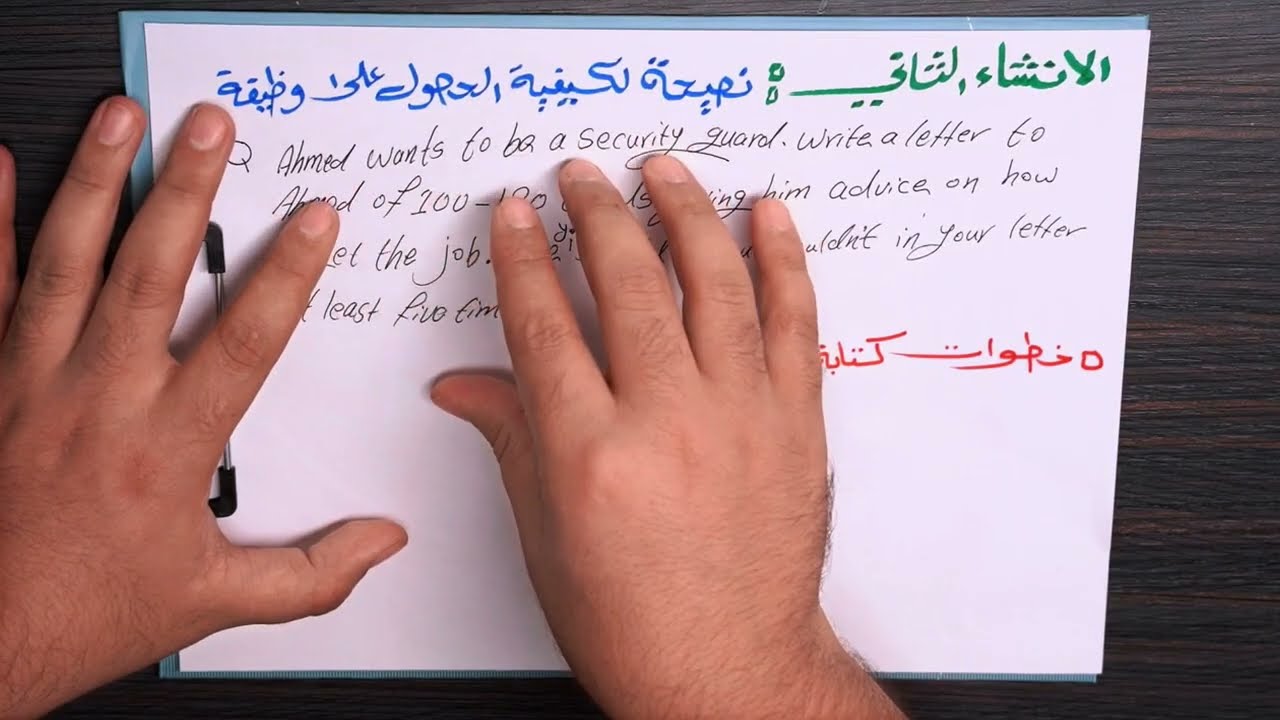 الانشاء الثاني : نصيحة لكيفية الحصول على وظيفة
Q Ahmed wants to be a security guard. Write a letter to
Ahmed of 100 - him advice on how
the job. in your letter
least five
خطوات كتابة